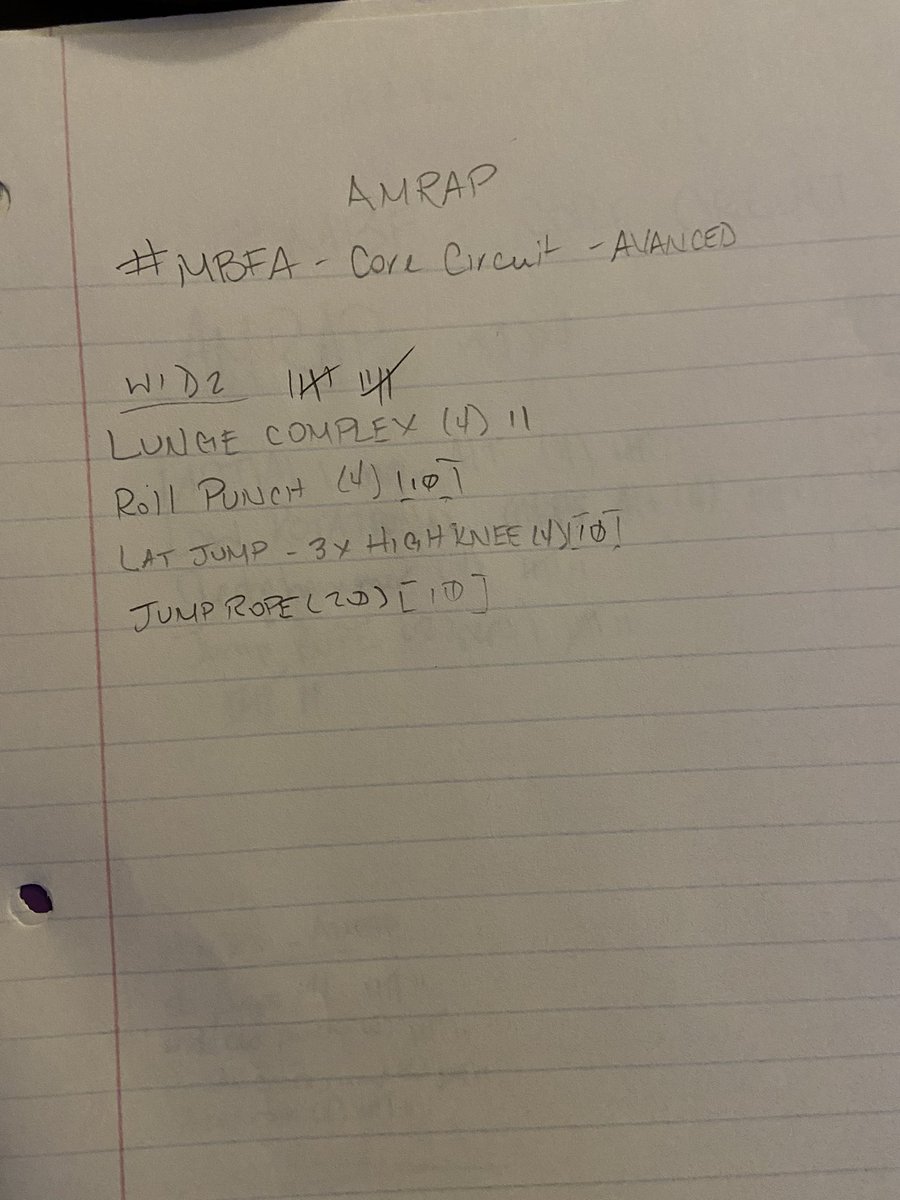 AMRAP
#MBFA - Core Circuit - AVANCED
W1D2
LUNGE COMPLEX (4) 11
Roll PUNCH (4) [10]
LAT JUMP - 3X HIGH KNEE (4) [10]
JUMP ROPE (20) [10]